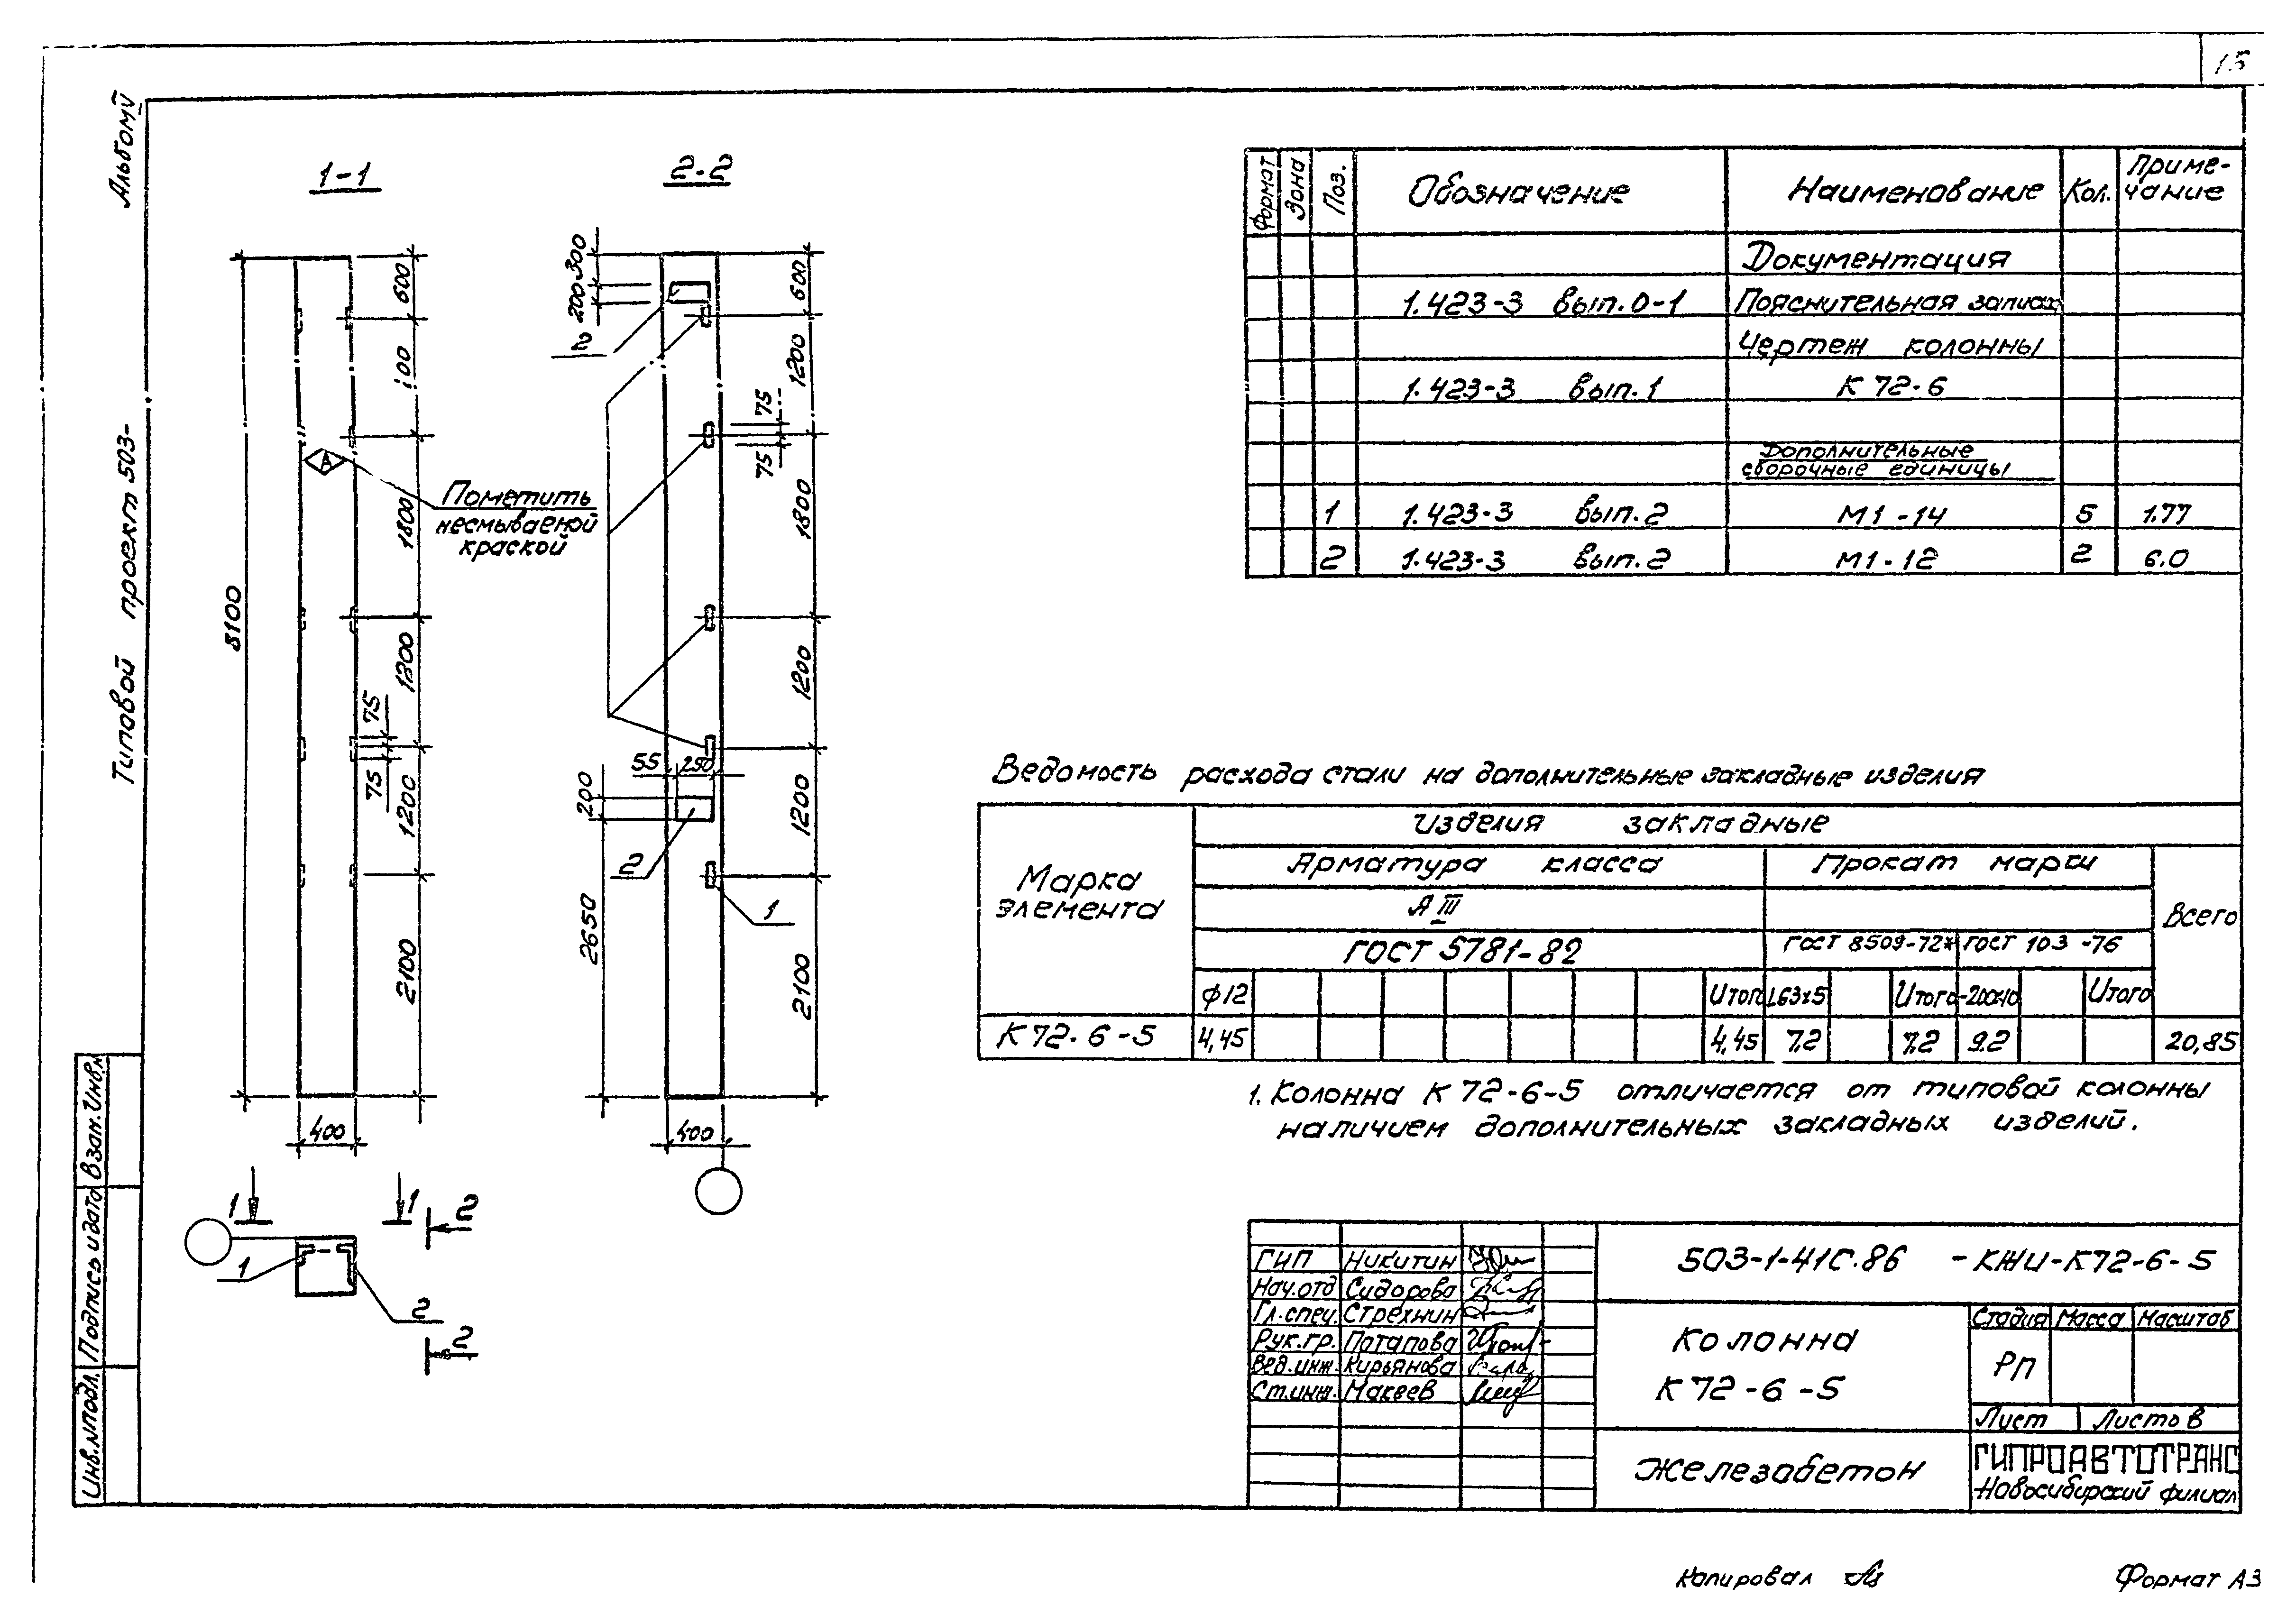 15
Альбом V
Типовой проект 503-
1-1
2-2
8100
600
1800
1200
2100
75
75
400
А
Пометить
несмываемой
краской
300
200
2
600
1200
75
75
1800
1200
1200
2100
55
250
200
2
2650
1
400
1
1
2
1
2
2
Формат
Зона
Поз.
Обозначение
Наименование
Кол.
Приме-
чание
Документация
1.423-3 вып. 0-1 Пояснительная
Чертеж колонны
1.423-3 вып. 1 К 72-6
Дополнительные
сборочные единицы
1 1.423-3 вып. 2 М1-14 5 1.77
2 1.423-3 вып. 2 М1-12 2 6.0
Ведомость расхода стали на дополнительные закладные изделия
Марка
элемента
Изделия закладные
Арматура класса
Прокат марки
Всего
А III
ГОСТ 5781-82
ГОСТ 8509-72* ГОСТ 103-76
ф12 Итог L63x5 Итого -200x10 Итого
К 72-6-5 4,45 4,45 7.2 7.2 9.2 20,85
1. Колонна К 72-6-5 отличается от типовой колонны
наличием дополнительных закладных изделий.
ГИП Никитин
Нач.отд Сидорова
Гл.спец. Стрехнин
Рук.гр. Потапова
Вед.инж. Кирьянова
Ст.инж. Макеев
503-1-41С.86 -КЖИ-К72-6-5
Колонна
К 72-6-5
Стадия Масса Масштаб
РП
Лист Листов
Железобетон
ГИПРОАВТОТРАНС
Новосибирский филиал
Инв.№подл. Подпись и дата Взам.Инв.№
Копировал
Формат А3